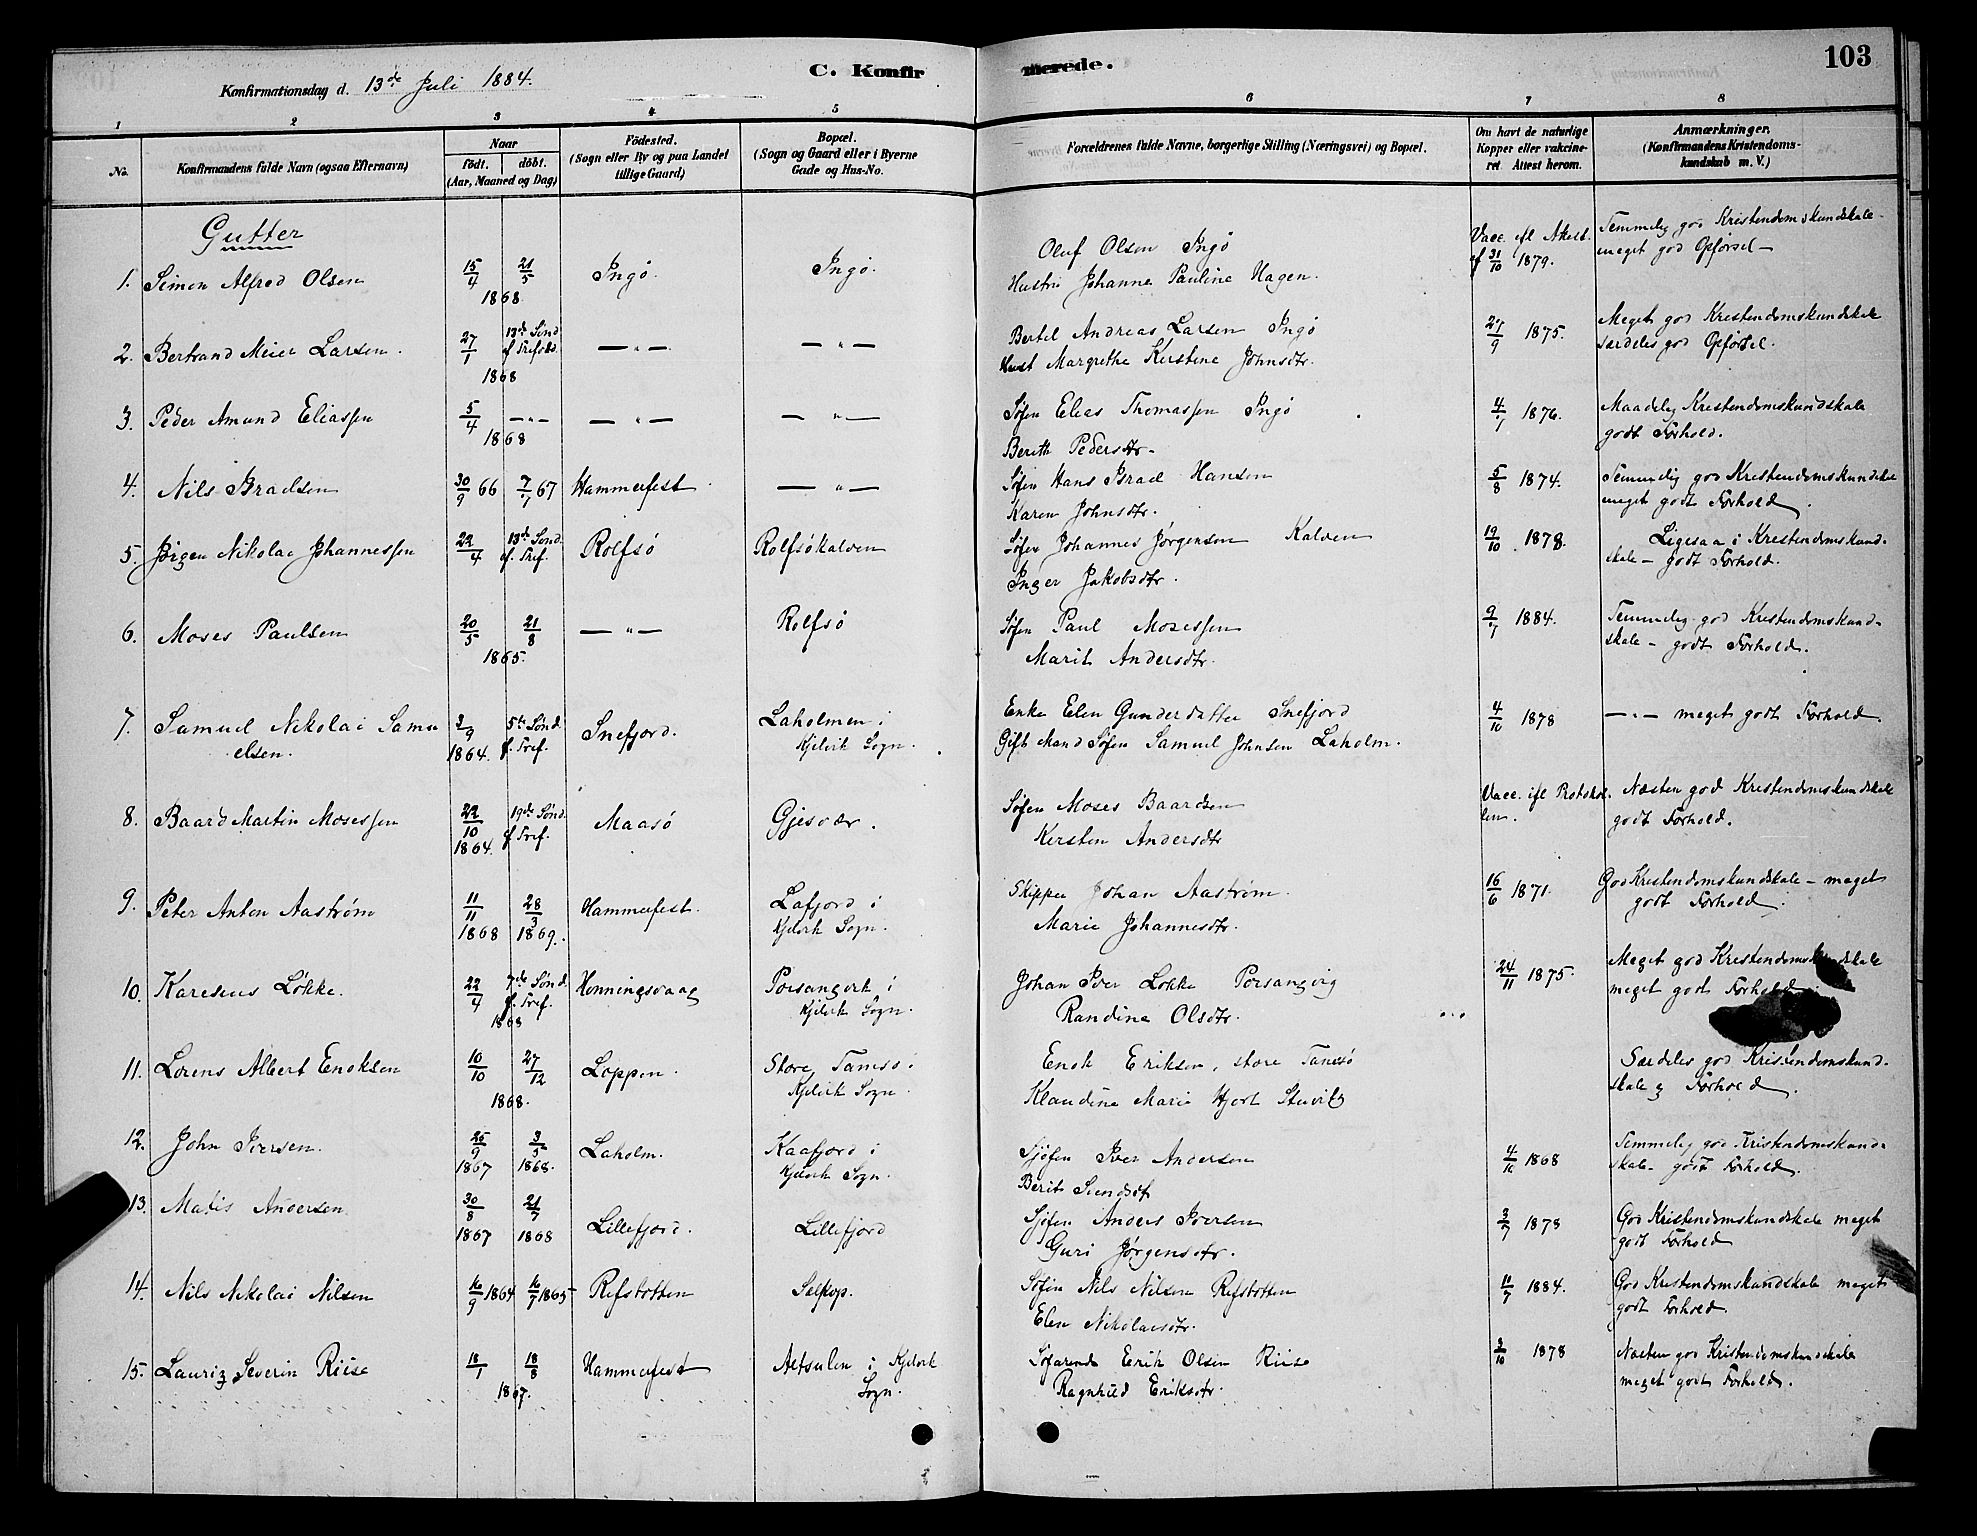 103
Konfirmationsdag d. 13de Juli 1884.
C. Konfirmerede.
1 2 3 4 5 6 7 8
No.
Konfirmandens fulde Navn (ogsaa Efternavn)
Naar
født. døbt.
(Aar, Maaned og Dag)
Födested.
(Sogn eller By og paa Landet
tillige Gaard)
Bopæl.
(Sogn og Gaard eller i Byerne
Gade og Hus-No.
Forældrenes fulde Navne, borgerlige Stilling (Næringsvei) og Bopæl.
Om havt de naturlige
Kopper eller vakcine-
ret Attest herom.
Anmærkninger.
(Konfirmandens Kristendoms-
kundskab m. V.)
Gutter
1. Simon Alfred Olsen 15/4 21/5 1868 Ingø. Ingø.
Oluf Olsen Ingø
Hustru Johanna Pauline Hagen.
Vacc. ifl Attest.
af 31/10 1879.
Temmelig god Kristendomskundskab-
meget god Opførsel-
2. Bertrand Meier Larsen. 27/1 13de Sønd. f. Trefold. 1868 — „ — — „ —
Bertel Andreas Larsen Ingø
Hust Margrethe Kirstine Johnsdtr.
27/9 1875.
Meget god Kristendomskundskab
særdeles god Opførsel.
3. Peder Amund Eliassen 5/4 — „ — 1868 — „ — — „ —
Søfin Elias Thomassen Ingø
Berith Pedersdtr.
4/7 1876.
Maadelig Kristendomskundskab
godt Forhold.
4. Nils Israelsen 30/9 66 7/7 67 Hammerfest — „ —
Søfin Hans Israel Hansen
Karen Johnsdtr.
5/8 1874.
Temmelig god Kristendomskundskab
meget godt Forhold.
5. Jørgen Nikolai Johannessen 22/4 13de Sønd. f. Tref. Rolfsø Rolfsøkalven
Søfin Johannes Jørgensen Kalven
Inger Jakobsdtr.
19/10 1878.
Ligesaa i Kristendomskund-
skab - godt Forhold.
6. Moses Paulsen 20/5 21/8 1865. — „ — Rolfsø
Søfin Paul Mosessen
Marit Andersdtr.
9/7 1884.
Temmelig god Kristendomskund-
skab - godt Forhold.
7. Samuel Nikolai Samu
elsen. 3/9 1864. 5te Sønd. f. Tref. Snefjord. Laholmen i
Kjelvik Sogn.
Enke Elen Gundersdatter Snefjord
Gift Mand Søfin Samuel Johnsen Laholm.
4/10 1878
— „ — meget godt Forhold.
8. Baard Martin Mosessen 22/10 1864. 19de Sønd. f. Tref. Maasø Gjesvær.
Søfin Moses Baardsen
Kirsten Andersdtr
Vacc. ifl Protokol-
len.
Næsten god Kristendomskundskab
godt Forhold.
9. Peter Anton Aastrøm 11/11 1868 28/3 1869. Hammerfest. Lafjord i
Kjelvik Sogn.
Skipper Johan Aastrøm.
Marie Johannesdtr.
16/6 1871.
God Kristendomskundskab - meget
godt Forhold.
10. Karesius Løkke. 22/4 7de Sønd. f. Tref. 1868 Honningsvaag Porsangvik i
Kjelvik Sogn.
Johan Iver Løkke Porsangvig
Randine Olsdtr.
24/11 1875.
Meget god Kristendomskundskab
meget godt Forhold
11. Lorens Albert Enoksen 10/10 27/12 1868. Loppen. Store Tamsø i
Kjelvik Sogn.
Enok Eriksen, store Tamsø
Klaudine Marie Hjort
Særdeles god Kristendomskund-
skab & Forhold.
12. John Iversen. 25/9 1867 3/5 1868. Laholm. Kaafjord i
Kjelvik Sogn.
Sjøfin Iver Andersen
Berit
4/10 1868
Temmelig god Kristendomskund-
skab- godt Forhold.
13. Matis Andersen 30/8 1867 21/7 1868 Lillefjord. Lillefjord
Sjøfin Anders Iversen
Guri Jørgensdtr.
3/7 1873
God Kristendomskundskab meget
godt Forhold
14. Nils Nikolai Nilsen 16/9 1864 16/7 1865 Refsbotten Selkop.
Søfin Nils Nilsen Refsbotten
Elen Nikolaisdtr.
11/7 1884.
God Kristendomskundskab meget
godt Forhold.
15. Lauriz Severin Riise 18/1 18/8 1867. Hammerfest Altsulen i Kjelvik
Sogn.
Søfarende Erik Olsen Riise
Ragnhild Eriksdtr.
3/10 1878
Næsten god Kristendomskundskab
meget godt Forhold.